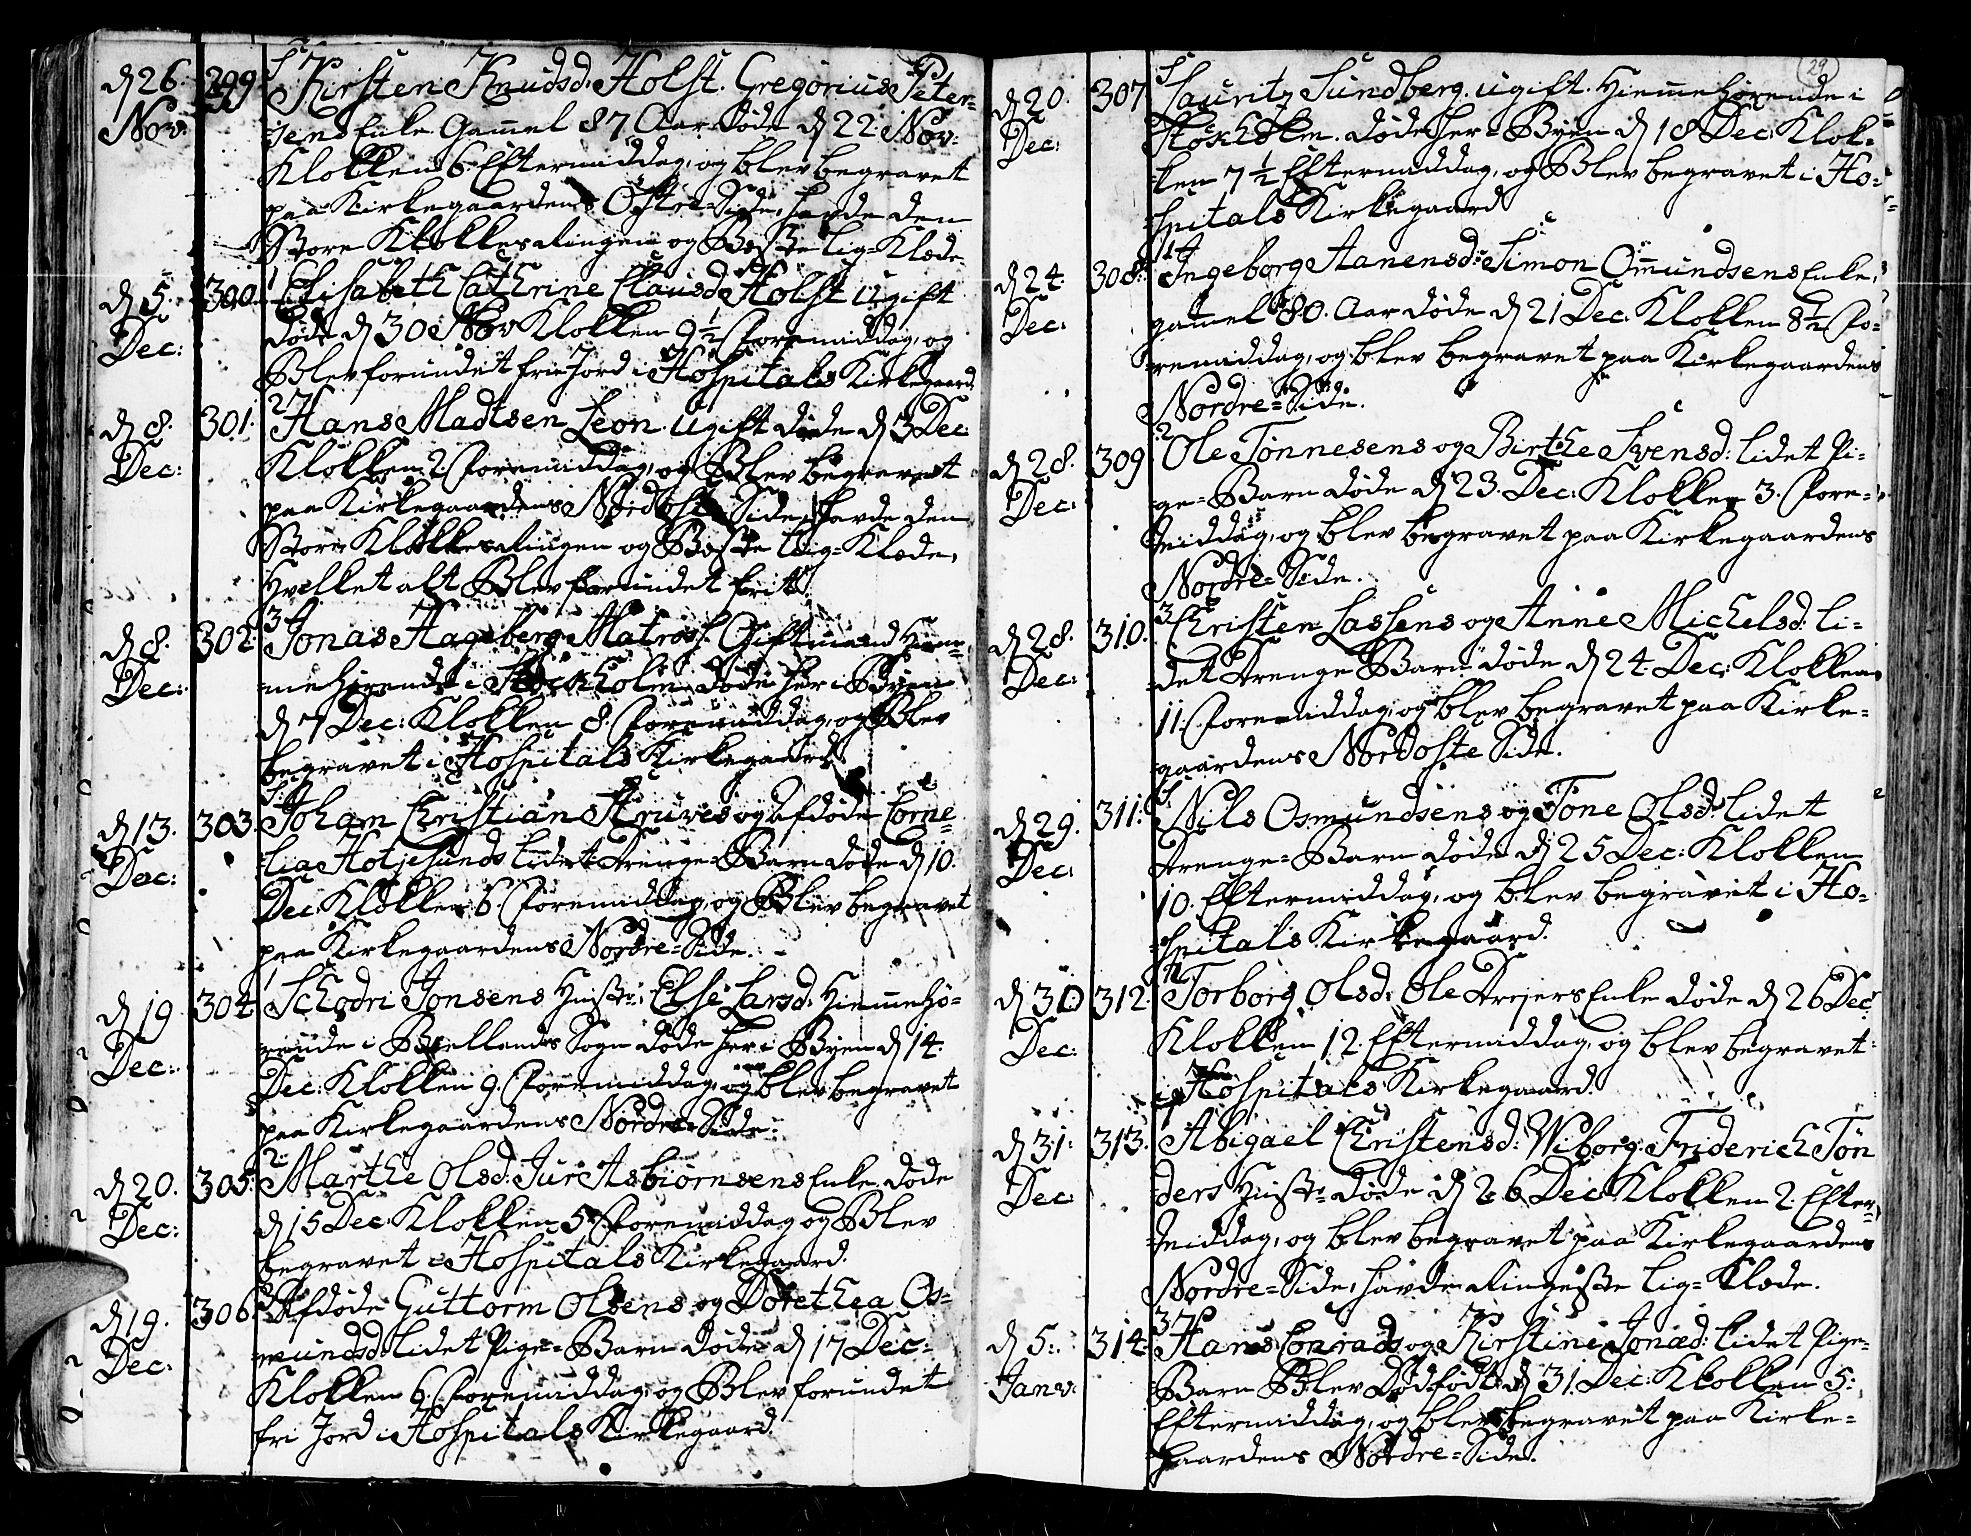 d 26. 299. Kirsten Knudsd: Holst. Gregorius Peter-
Nov. sens Enke Gammel 87 Aar døde d 22 Nov:
Klokken 6. Eftermiddag, og blev begravet
paa Kirkegaardens Østre Side, havde den
Store Klokkes Ringen og Beste Lig-Klæde.
d 5. 300. Elisabeth Cathrine Clausd: Holst ugift
Dec: døde d 30 Nov Klokken 9½ Foremiddag, og
Blev forundet fri Jord i Hospitals Kirkegaard.
d 8. 301. Hans Madtsen Leon. ugift døde d 3 Dec
Dec: Klokken 2. Foremiddag, og Blev begravet
paa Kirkegaardens Nordoste Side, havde den
Store Klokkes Ringen og Beste Lig-Klæde,
Hvelket alt Blev forundet frit.
d 8. 302. Jonas Hageberg Matros. Giftmand Hiem-
Dec: me hørende i Stockholm døde her i Byen
d 7 Dec: Klokken 8. Foremiddag, og Blev
begravet i Hospitals Kirkegaard.
d 13. 303. Johan Christian Struves og Afdøde Corne-
Dec: lia Hotjesunds lidet Drenge-Barn døde d 10.
Dec. Klokken 6. Foremiddag, og Blev begravet
paa Kirkegaardens Nordre-Side.
d 19 304. Schodri Jonsens Hustr: Else Larsd: Hiemmehø-
Dec: rende i Biellands Sogn døde her i Byen d 14.
Dec: Klokken 9. Foremiddag, og blev begravet
paa Kirkegaardens Nordre Side.
d 20. 305. Marthe Olsd: Jur Asbiørnsens Enke døde
Dec: d 15 Dec: Klokken 5 Foremiddag og Blev
begravet i Hospitals Kirkegaard.
d 19. 306. Afdøde Guttorm Olsens og Dorethea Os-
Dec: mundsd: lidet Pige-Barn døde d 17 Dec-
Klokken 6. Foremiddag, og Blev forundet
fri Jord i Hospitals Kirkegaard.
29
d 20. 307 Lauritz Lundberg. ugift. Hiemmehørende i
Dec: Stokholm. døde her i Byen d 18 Dec: Klok-
ken 7½ Eftermiddag, og Blev begravet i Ho-
spitals Kirkegaard
d 24. 308. Ingeborg Aanensd: Simon Omundsens Enke,
Dec: gammel 80. Aar døde d 21 Dec: Klokken 8½ Fo-
remiddag, og blev begravet paa Kirkegaardens
Nordre-Side.
d 28. 309 Ole Tønnesens og Birthe Svensd: lidet Pi-
Dec: ge-Barn døde d 23. Dec: Klokken 3. Fore-
middag, og blev begravet paa Kirkegaardens
Nordre-Side.
d 28. 310. Christen Lassens og Anne Michelsd: li-
Dec: det Drenge Barn døde d 24. Dec: Klokken
11. Foremiddag, og blev begravet paa Kirke-
gaardens Nordoste Side.
d 29. 311. Nils Osmundsens og Tone Olsd: lidet
Dec: Drenge-Barn døde d 25 Dec: Klokken
10. Eftermiddag, og blev begravet i Ho-
spitals Kirkegaard.
d 30 312. Torborg Olsd: Ole Drejers Enke døde d 26 Dec:
Dec: Klokken 12. Eftermiddag, og blev begravet
i Hospitals Kirkegaard.
d 31: 313. Abigael Christensd: Wiborg. Friderich Tøn
Dec: ders Hustr: døde d 26 Dec Klokken 2. Efter-
middag, og blev begravet paa Kirkegaardens
Nordre-Side, havde Ringeste Lig-Klæde.
d 5. 314. Hans Conrads og Kirstine Jonæd: lidet Pige-
Janv: Barn Blev Dødfødt d 31. Dec: Klokken 5.
Eftermiddag, og blev begravet paa Kirke-
gaardens Nordre-Side.